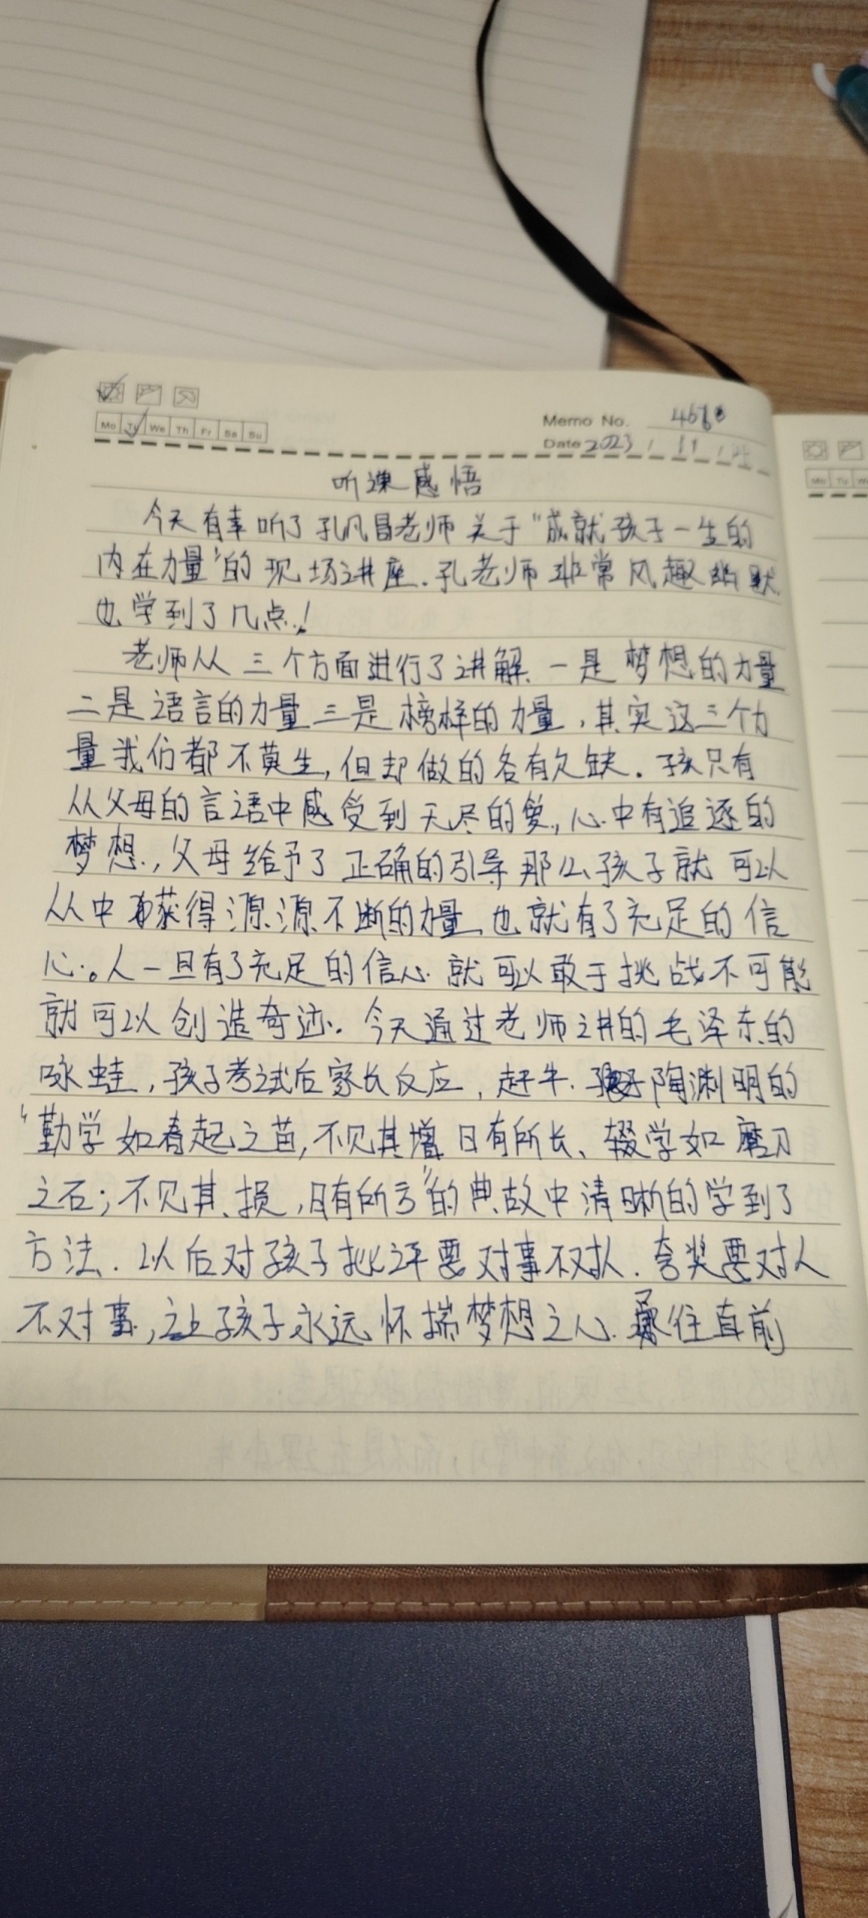 Memo No. 4678
Mo Tu We Th Fr Sa Su
Date 2023 / 11 /
听课感悟
今天有幸听了孔凡昌老师关于“成就孩子一生的
内在力量”的现场讲座.孔老师非常风趣幽默
也学到了几点!
老师从三个方面进行了讲解.一是梦想的力量
二是语言的力量三是榜样的力量,其实这三个力
量我们都不莫生,但却做的各有欠缺.孩只有
从父母的言语中感受到无尽的爱,心中有追逐的
梦想.,父母给予了正确的引导那么孩子就可以
从中获得源源不断的力量,也就有了充足的信
心.。人一旦有了充足的信心.就可以敢于挑战不可能
就可以创造奇迹.今天通过老师讲的毛泽东的
咏蛙,孩子考试后家长反应,赶牛.陶渊明的
“勤学如春起之苗,不见其增日有所长、辍学如磨刀
之石;不见其损,日有所亏”的典故中清晰的学到了
方法.以后对孩子批评要对事不对人.夸奖要对人
不对事,让孩子永远怀揣梦想之心.勇往直前
Mo Tu W